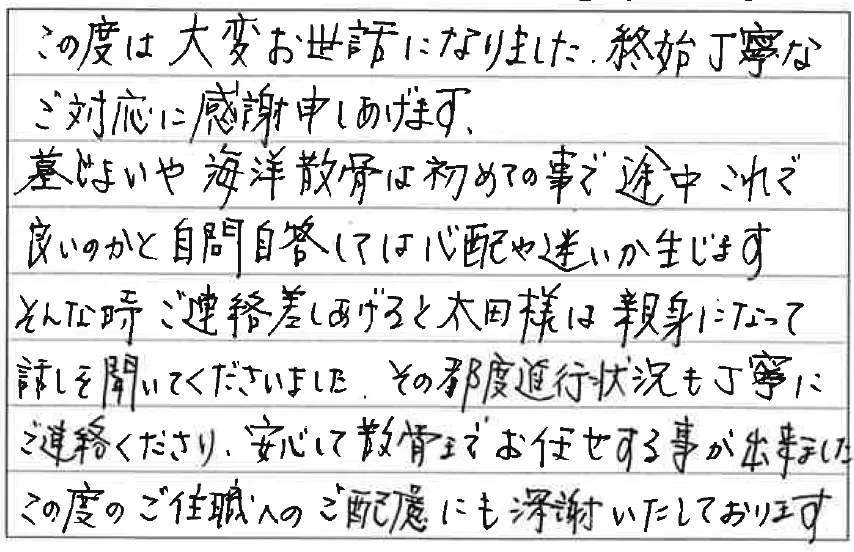 この度は大変お世話になりました.終始丁寧な
ご対応に感謝申しあげます、
墓じまいや海洋散骨は初めての事で途中これで
良いのかと自問自答しては心配や迷いが生じます
そんな時ご連絡差しあげると太田様は親身になって
話しを聞いてくださいました.その都度進行状況も丁寧に
ご連絡くださり、安心して散骨までお任せする事が出来ました
この度のご住職へのご配慮にも深謝いたしております